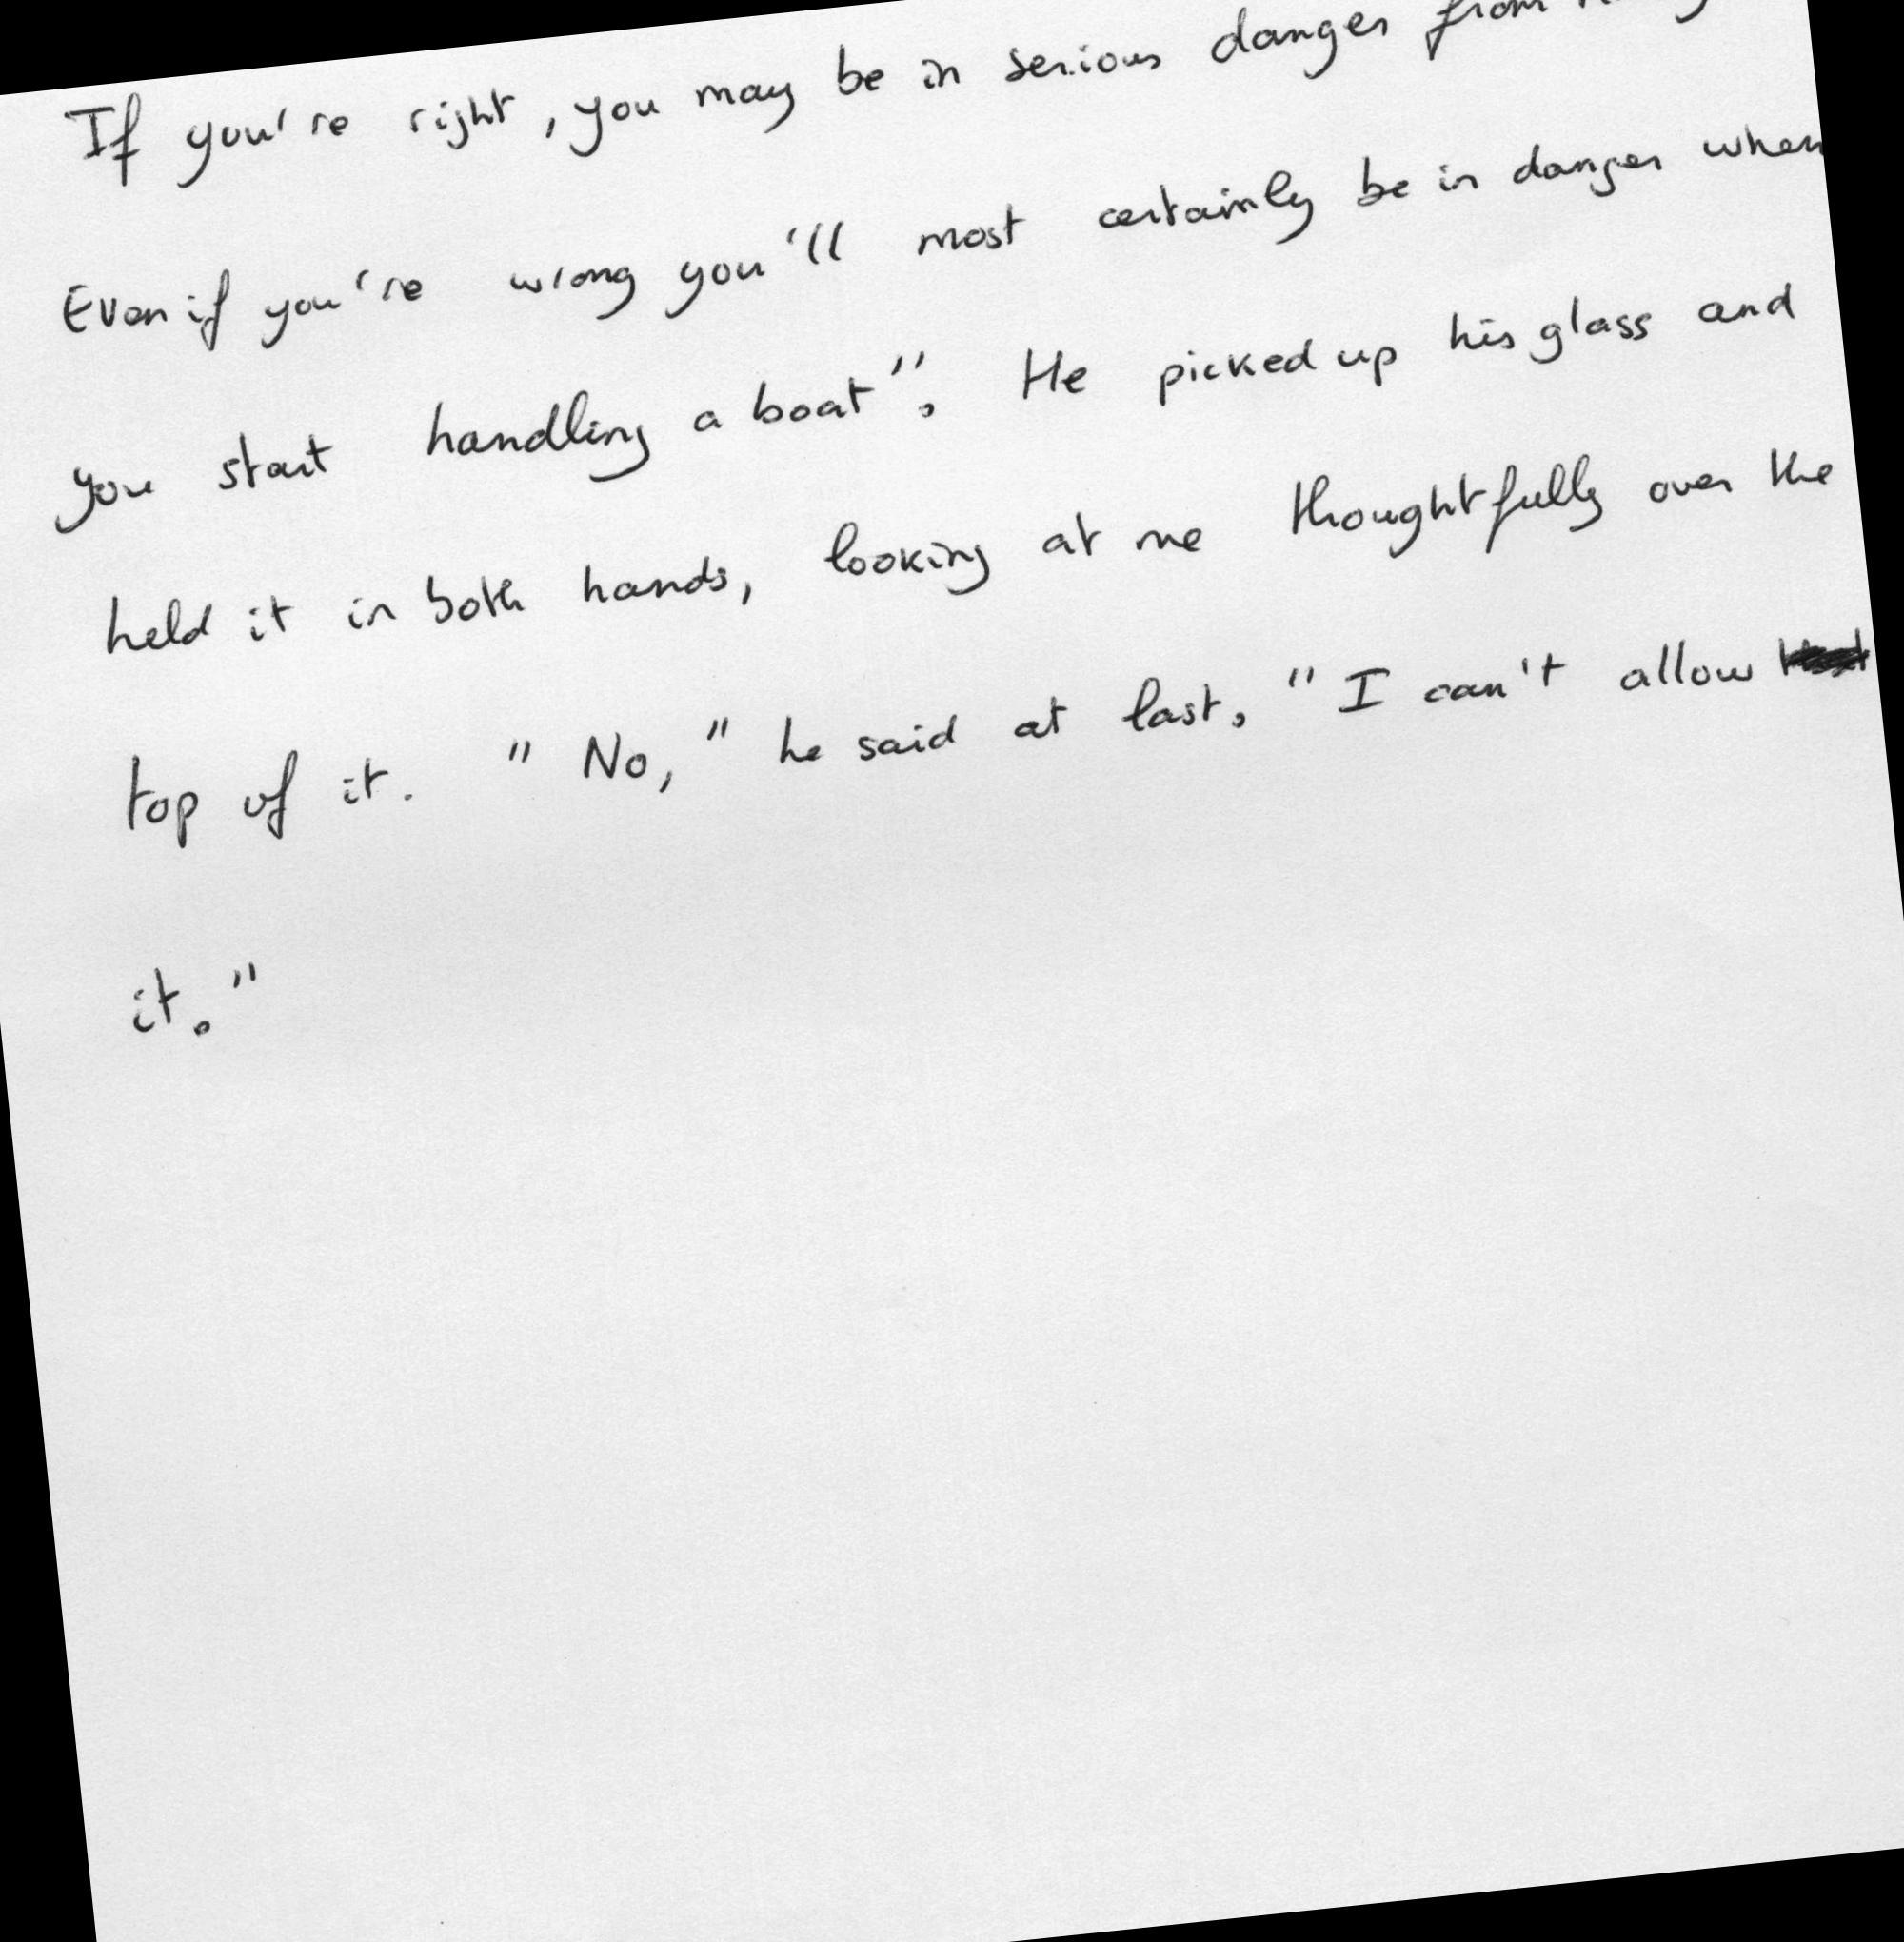 If you're right, you may be in serious danger from
Even if you're wrong you'll most certainly be in danger when
you start handling a boat". He picked up his glass and
held it in both hands, looking at me thoughtfully over the
top of it. "No," he said at last, "I can't allow
it."